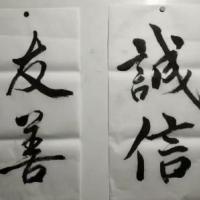 誠信
友善